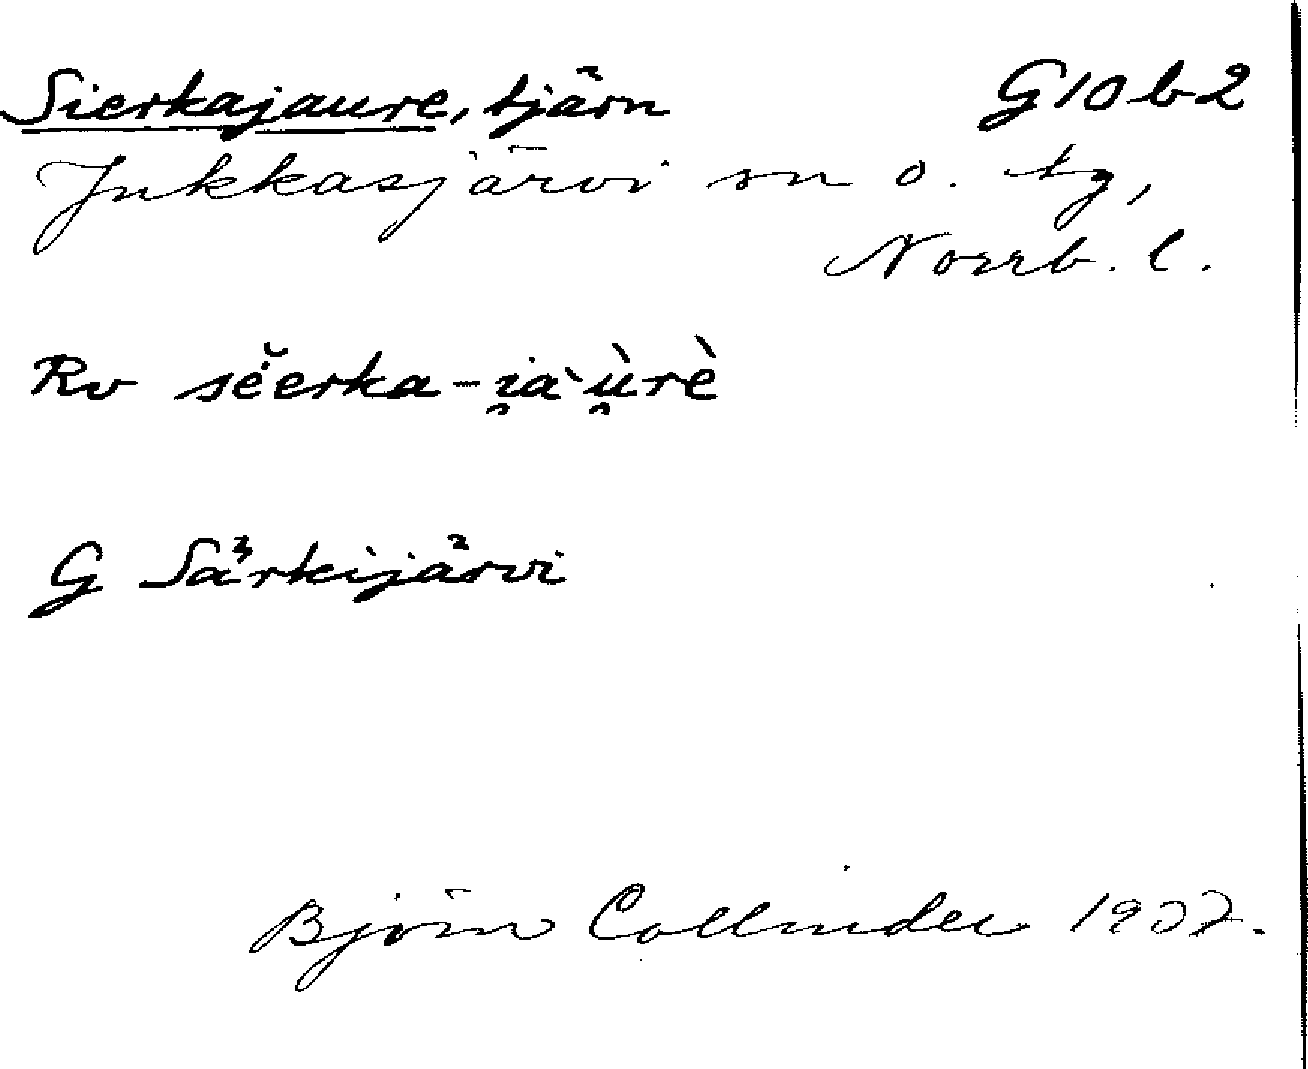 Sierkajaure, tjärn G10b2
Jukkasjärvi sn o. tg,
Norrb. l.
Rv sė̆erka-i̯a`ù̯rè
G Särkijärvi
Björn Collinder 1937.